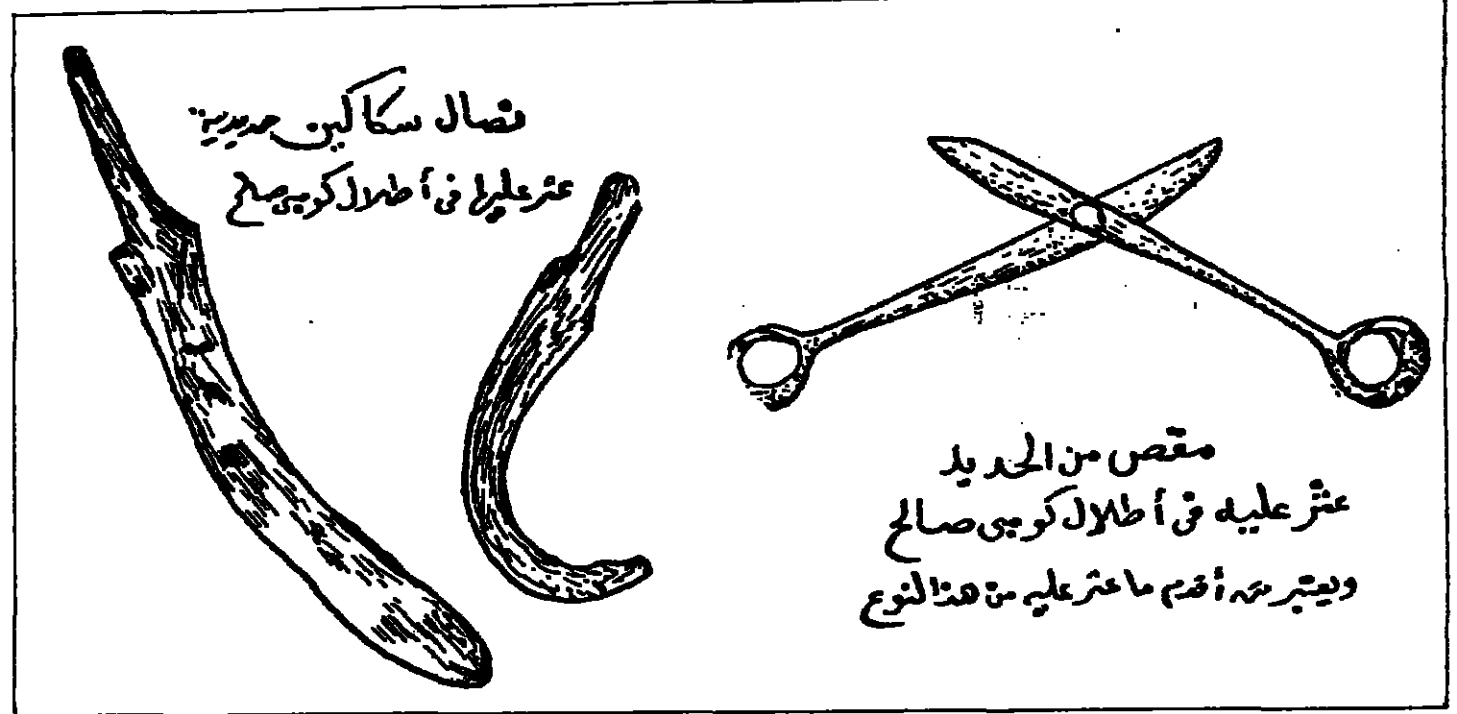 نصال سكاكين حديدية
عثر عليها فى أطلال كومبى صالح
مقص من الحديد
عثر عليه فى أطلال كومبى صالح
ويعتبر من أقدم ما عثر عليه من هذا النوع